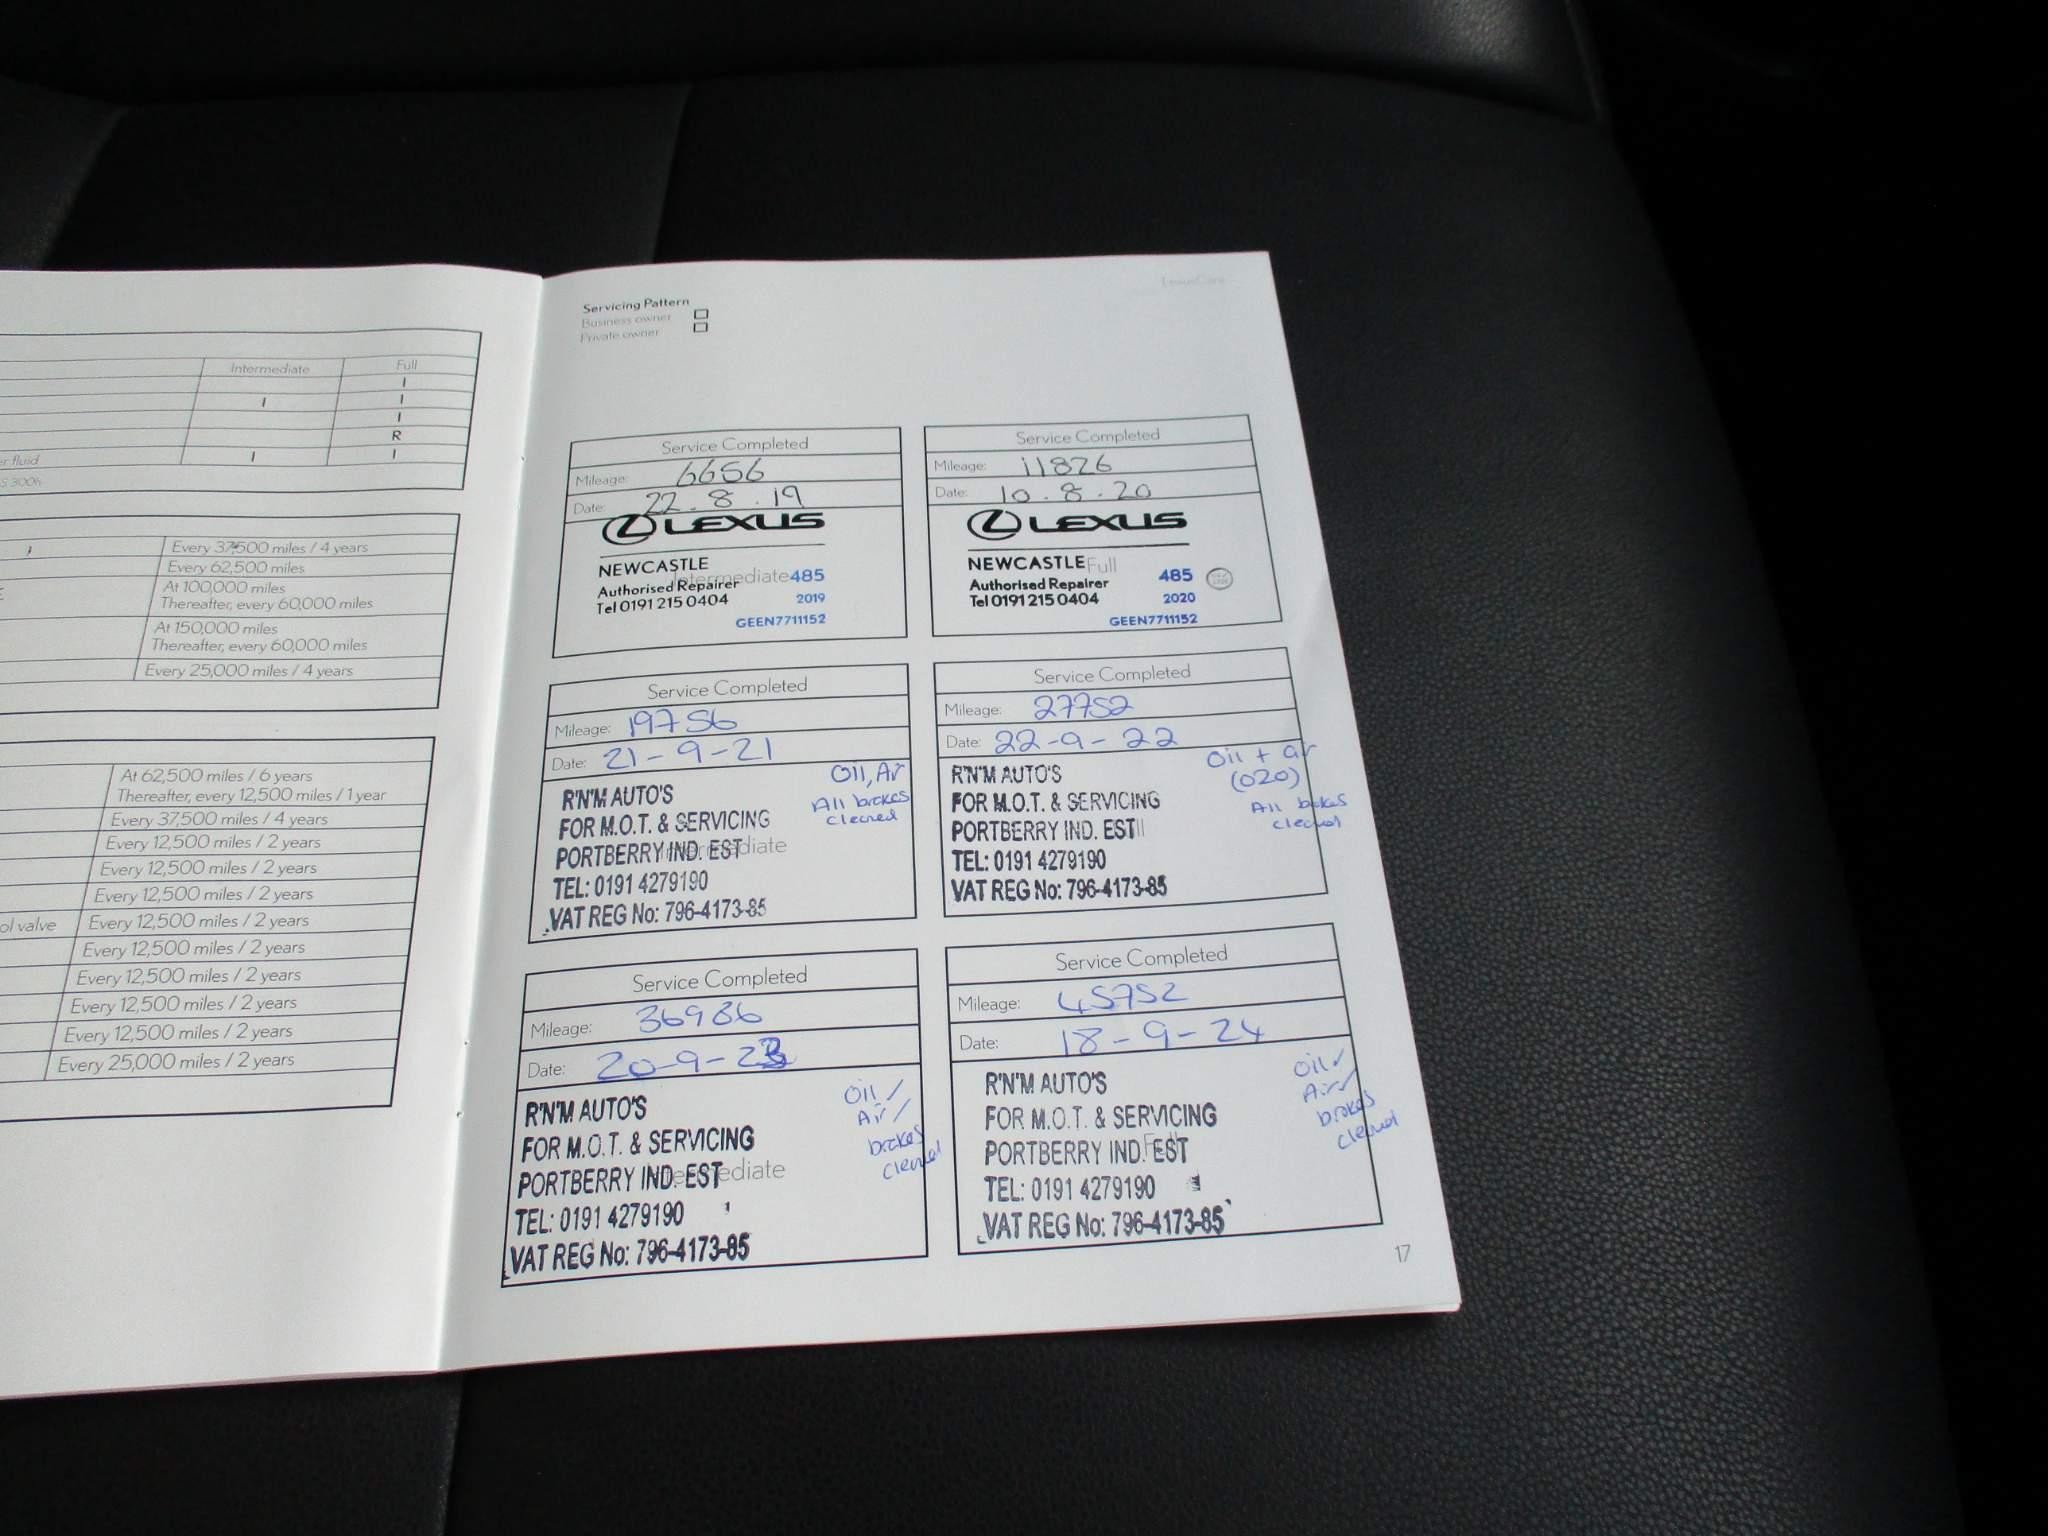 Intermediate Full
I
I I
I
R
er fluid I I
S 300h
Every 37,500 miles / 4 years
Every 62,500 miles
At 100,000 miles
Thereafter, every 60,000 miles
At 150,000 miles
Thereafter, every 60,000 miles
Every 25,000 miles / 4 years
At 62,500 miles / 6 years
Thereafter, every 12,500 miles / 1 year
Every 37,500 miles / 4 years
Every 12,500 miles / 2 years
Every 12,500 miles / 2 years
Every 12,500 miles / 2 years
ol valve Every 12,500 miles / 2 years
Every 12,500 miles / 2 years
Every 12,500 miles / 2 years
Every 12,500 miles / 2 years
Every 12,500 miles / 2 years
Every 25,000 miles / 2 years
LexusCare
Servicing Pattern
Business owner
Private owner
Service Completed
Mileage: 6656
Date: 22.8.19
LEXUS
NEWCASTLE
Intermediate 485
Authorised Repairer
Tel 0191 215 0404 2019
GEEN7711152
Service Completed
Mileage: 11826
Date: 10.8.20
LEXUS
NEWCASTLE Full
Authorised Repairer 485
Tel 0191 215 0404 2020
GEEN7711152
Service Completed
Mileage: 19756
Date: 21-9-21
Oil, Air
All brakes
cleaned
R'N'M AUTO'S
FOR M.O.T. & SERVICING
PORTBERRY IND. EST
Intermediate
TEL: 0191 4279190
VAT REG No: 796-4173-85
Service Completed
Mileage: 27752
Date: 22-9-22
Oil + air
(020)
All brakes
cleaned
R'N'M AUTO'S
FOR M.O.T. & SERVICING
PORTBERRY IND. EST
TEL: 0191 4279190
VAT REG No: 796-4173-85
Service Completed
Mileage: 36986
Date: 20-9-23
Oil ✓
Air ✓
brakes
cleaned
R'N'M AUTO'S
FOR M.O.T. & SERVICING
PORTBERRY IND. EST
Intermediate
TEL: 0191 4279190
VAT REG No: 796-4173-85
Service Completed
Mileage: 45752
Date: 18-9-24
Oil ✓
Air ✓
brakes
cleaned
R'N'M AUTO'S
FOR M.O.T. & SERVICING
PORTBERRY IND. EST
Full
TEL: 0191 4279190
VAT REG No: 796-4173-85
17